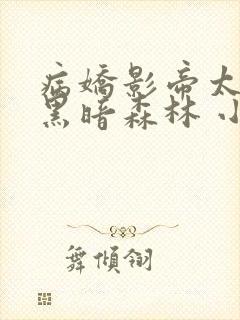 病嬌影帝太
黑暗森林 小
舞傾翎